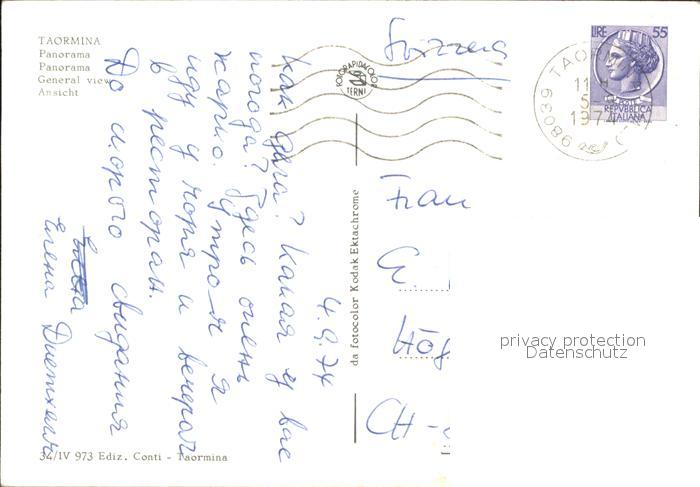 TAORMINA
Panorama
Panorama
General view
Ansicht
34/IV 973 Ediz. Conti - Taormina
da fotocolor Kodak Ektachrome
FOTORAPIDACOLOR
TERNI
LIRE 55
REPUBBLICA
ITALIANA
98039 TAO
11
1974
4.9.74
Как дела? Какая у вас
погода? Здесь очень
жарко. Утром я
иду у моря и вечером
в ресторан.
До скорого свидания
Елена
Svizzera
Frau
G.
Höf
CH-
privacy protection
Datenschutz